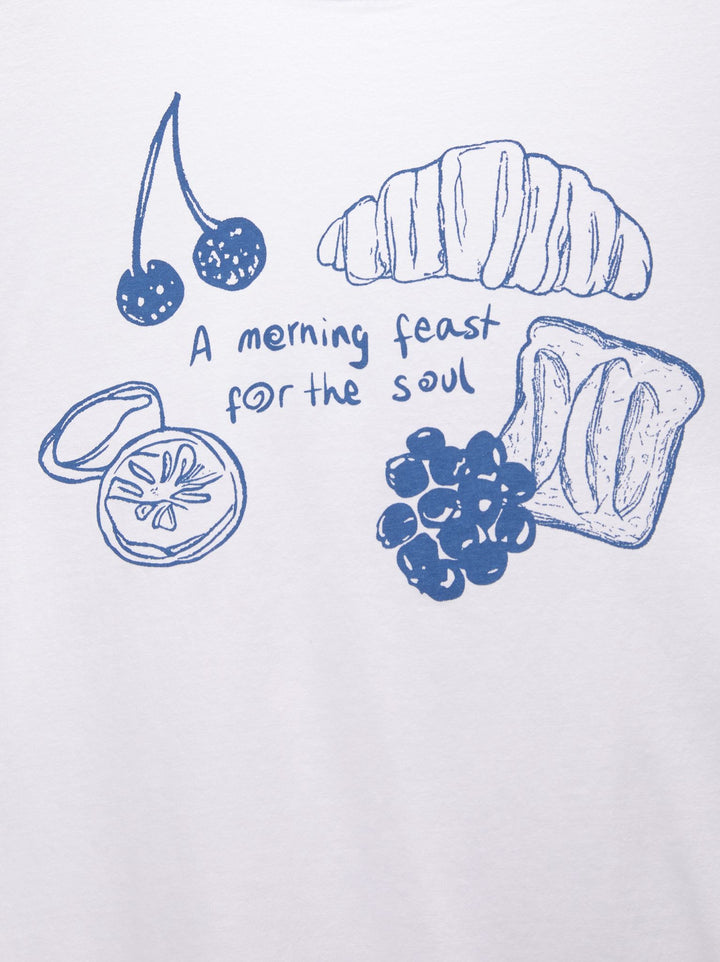 A morning feast
for the soul